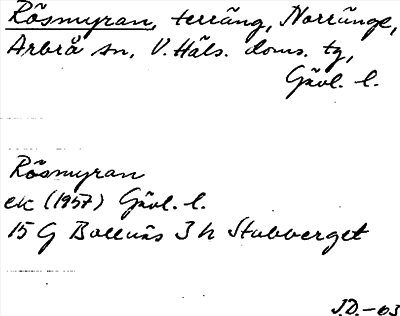 Rösmyran, terräng, Norränge,
Arbrå sn, V. Häls. doms. tg,
Gävl. l.
Rösmyran
ek (1957) Gävl. l.
15 G Bollnäs 3 h Stabberget
J.D.-03